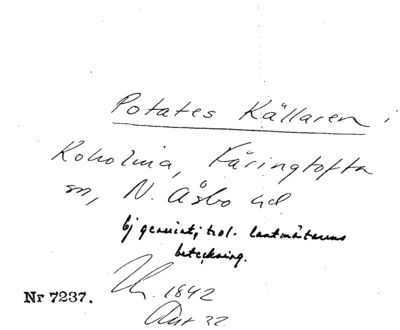 Potates Källaren i
Koholma, Färingtofta
sn, N. Åsbo hd
ej genuint; trol. lantmätarens
beteckning.
1842
Nr 7237.
Akt 32